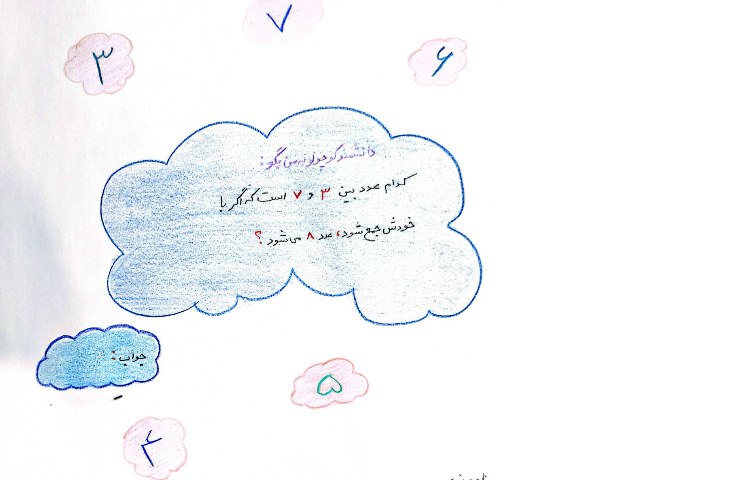 ۷
۳
۶
دانشمند کوچولو به من بگو:
کدام عدد بین ۳ و ۷ است که اگر با
خودش جمع شود، عدد ۸ می‌شود؟
جواب:
۵
۴